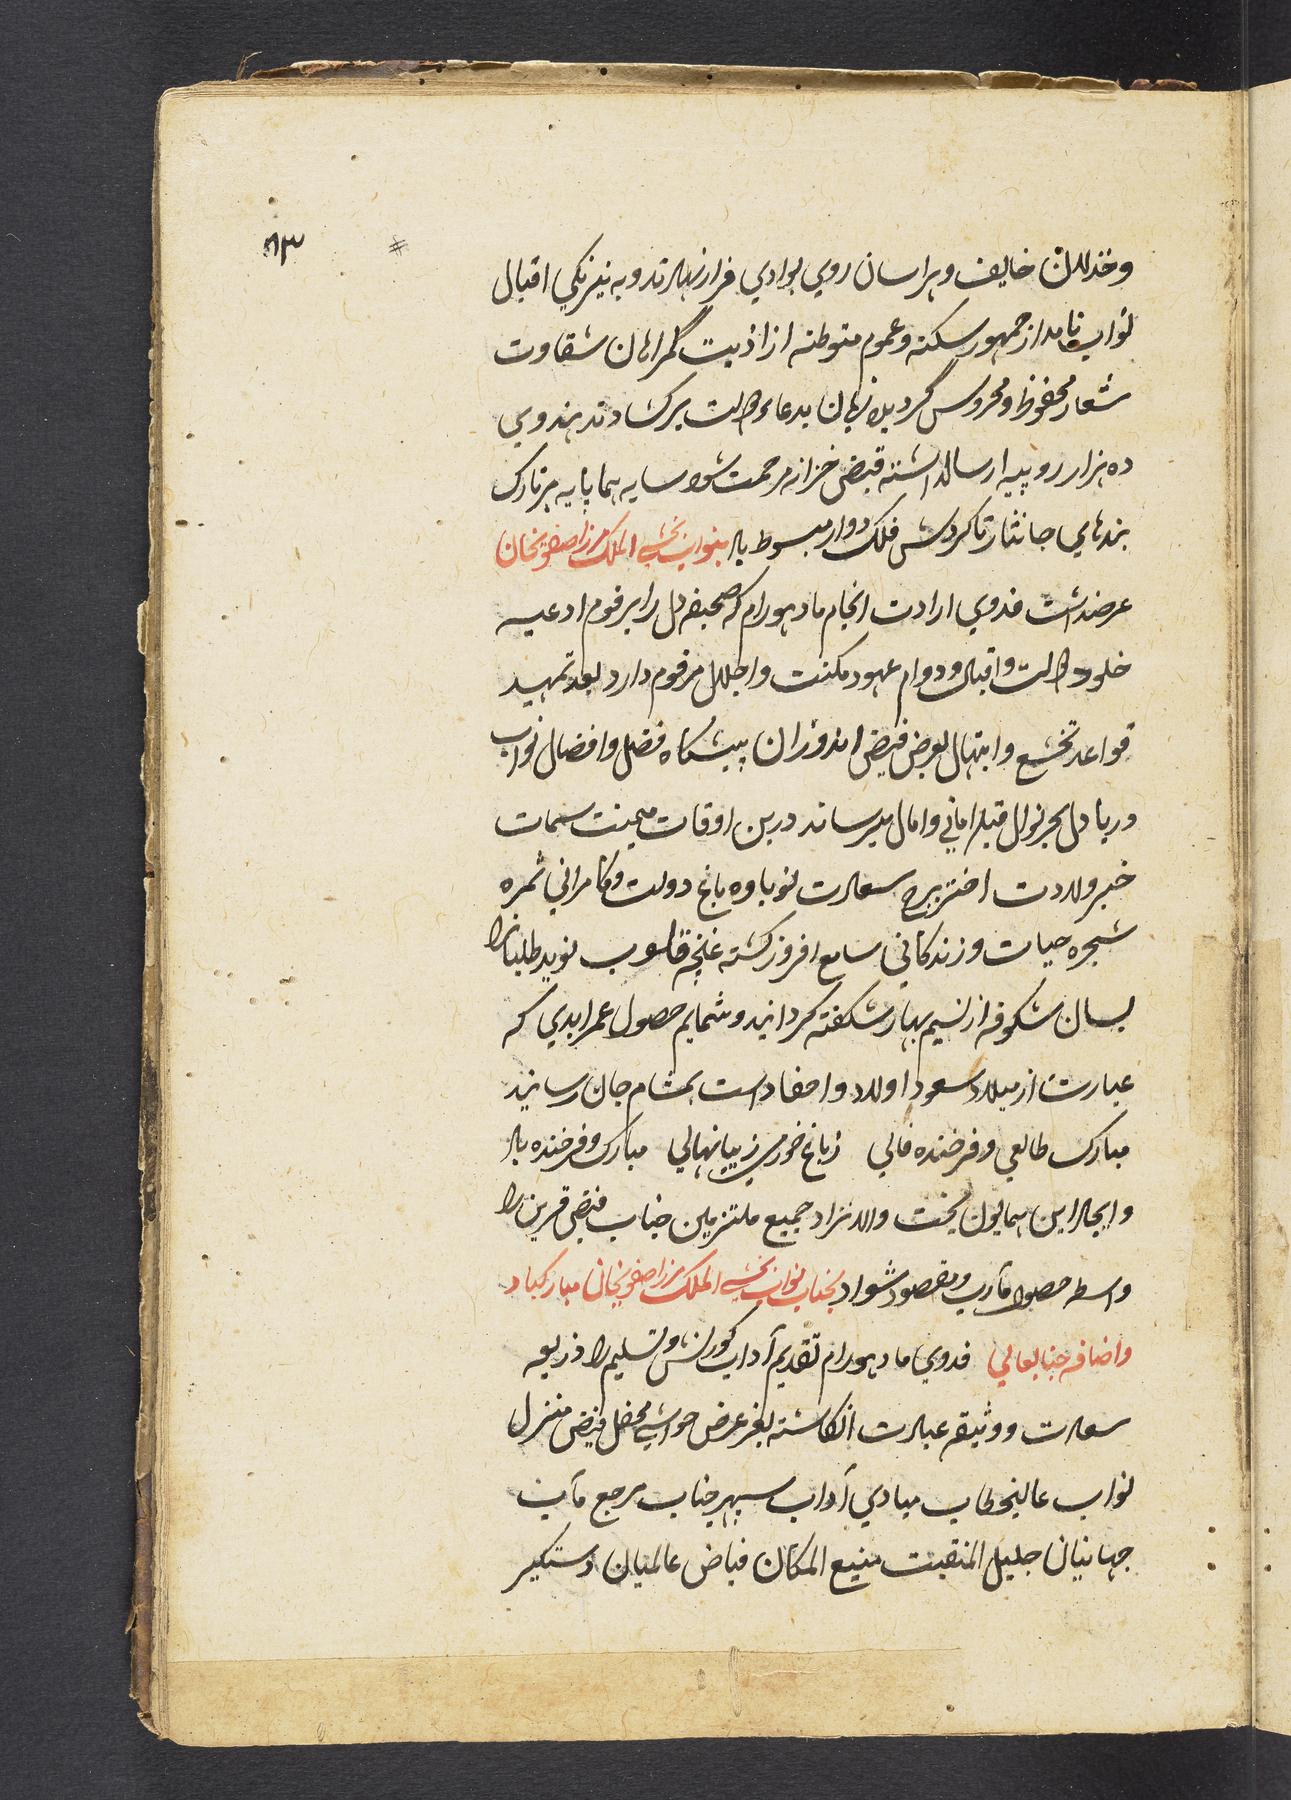 ۹۳
وخذلان خایف و هراسان روی بوادی فرار نهادند و به نیرنگی اقبال
نواب نامدار جمهور سکنه و عموم متوطنه از اذیت گمراهان شقاوت
شعار محفوظ و محروس گردیده زبان بدعاء دولت برکشادند هندوی
ده هزار روپیه ارسالداشته قبض خزانه مرحمت شود سایه هما پایه بر تارک
بندهای جانثار تا گردش فلک دوار مبسوط باد بنواب بخشی الملک مرزا صفویخان
عرضداشت فدوی ارادت انجام مادهورام که صحیفه دل را برقوم ادعیه
خلود دولت و اقبال و دوام عهود مکنت و اجلال مرقوم دارد بعد تمهید
قواعد تخشع و ابتهال بعرض فیض اندوزان پیشگاه فضل و افضال نواب
دریا دل بحر نوال قبله امانی و امال میرساند درین اوقات میمنت سمات
خبر ولادت اختر برج سعادت نوباوه باغ دولت و کامرانی ثمره
شجره حیات و زندگانی سامع افروز گشته غنچه قلوب نوید طلبانرا
بسان شگوفه از نسیم بهار شگفته گردانید و شمایم حصول عمر ابدی که
عبارت از میلاد سعود اولاد و احفاد است بمشام جان رسانید
مبارک طالعی و فرخنده فالی ز باغ خرمی زیبا نهالی مبارک و فرخنده باد
و ایجاد این همایون بخت والا نژاد جمیع ملتزمین جناب فیض قرین را
واسطه حصول مآرب و مقصود شواد بجناب نواب بخشی الملک مرزا صفویخان مبارکباد
و اضافه جنابعالی فدوی مادهورام تقدیم آداب کورنش و تسلیم را ذریعه
سعادت و وثیقه عبادت انگاشته بعز عرض حواشی محفل فیض منزل
نواب عالیخطاب مبادی آداب سپهر جناب مرجع مآب
جهانیان جلیل المنقبت منیع المکان فیاض عالمیان دستگیر